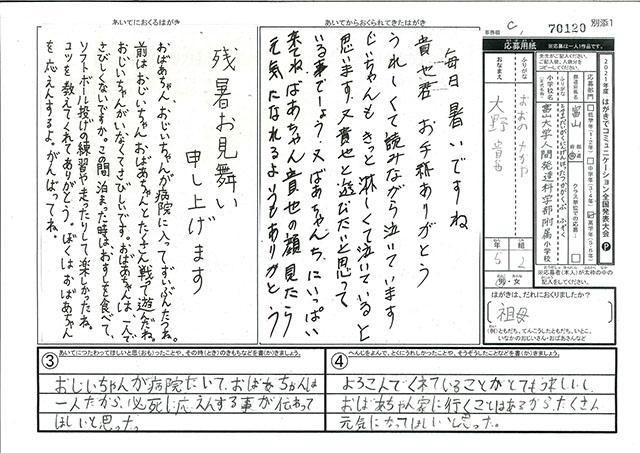 別添1
C,
70120
事務欄
応募用紙
※応募は一人1作品です。
2021年度 はがきでコミュニケーション全国発表大会
応募部門
低学年(1・2年)
中学年(3・4年)
高学年(5・6年)
都道府県名
富山
ふりがな
小学校名
富山大学人間発達科学部附属小学校
ふりがな
おおの
おなまえ
大野 貴也
年 5
組 2
男・女
※応募者(本人)が太枠の中の記入をしてください。
はがきは、だれにおくりましたか?
祖母
(例)ともだち、てんこうしたともだち、いとこ、
いなかのおじいさん・おばあさんなど
あいてからおくられてきたはがき
毎日 暑いですね
貴也君 お手紙ありがとう
うれしくて読みながら泣いています
じいちゃんもきっと淋しくて泣いていると
思います 又貴也と遊びたいと思って
いる事でしょう 又ばあちゃんち、にいっぱい
来てねばあちゃん貴也の顔見たら
元気になれるよう もありがとう
あいてにおくるはがき
残暑お見舞い
申し上げます
おばあちゃん、おじいちゃんが病院に入ってずいぶんたつね。
前はおじいちゃん、おばあちゃんとたくさん戦って遊んだね。
おじいちゃんがいなくてさびしいです。おばあちゃんは一人で
さびしくないですか。この間泊まった時はおすしを食べて、
ソフトボール投げの練習や走ったりして楽しかったね。
コツを教えてくれてありがとう。ぼくはおばあちゃん
を応えんするよ。がんばってね。
③ あいてにつたわってほしいと思(おも)ったことや、その時(とき)のきもちなどを書(か)きましょう。
おじいちゃんが病院にいて、おばあちゃんは
一人だから、必死に応えんする事が伝わって
ほしいと思った。
④ へんじをよんで、とくにうれしかったことや、そうぞうしたことなどを書(か)きましょう。
よろこんでくれていることがとてもうれしいし、
おばあちゃん家に行くことはあるからたくさん
元気になってほしいと思った。